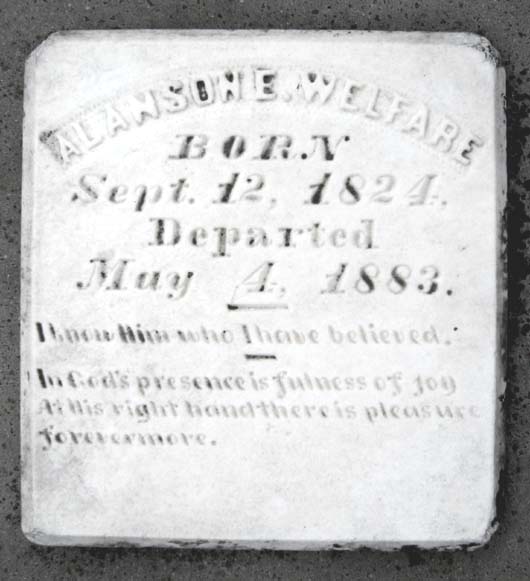 ALANSON E. WELFARE
BORN
Sept. 12, 1824.
Departed
May 4, 1883.
I know Him who I have believed.
In God's presence is fulness of joy
At His right hand there is pleasure
forevermore.